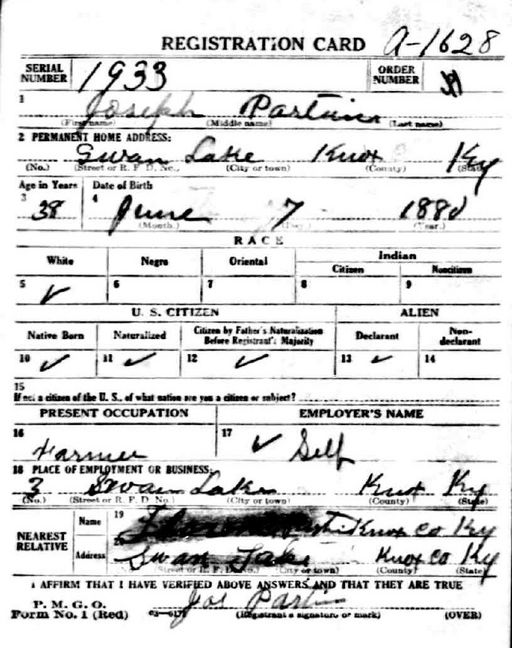 REGISTRATION CARD A-1628
SERIAL NUMBER 1933 ORDER NUMBER
1 Joseph Partin
(First name) (Middle name) (Last name)
2 PERMANENT HOME ADDRESS:
Swan Lake Knox Ky
(No.) (Street or R. F. D. No.) (City or town) (County) (State)
Age in Years Date of Birth
3 38 4 June 7 1880
(Month.) (Day.) (Year.)
RACE
White Negro Oriental Indian
Citizen Noncitizen
5 ✓ 6 7 8 9
U. S. CITIZEN ALIEN
Native Born Naturalized Citizen by Father's Naturalization Before Registrant's Majority Declarant Non-declarant
10 ✓ 11 ✓ 12 ✓ 13 ✓ 14
15
If not a citizen of the U. S., of what nation are you a citizen or subject?
PRESENT OCCUPATION EMPLOYER'S NAME
16 Farmer 17 ✓ Self
18 PLACE OF EMPLOYMENT OR BUSINESS:
3 Swan Lake Knox Ky
(No.) (Street or R. F. D. No.) (City or town) (County) (State)
NEAREST RELATIVE
Name 19 Knox Co Ky
Address 20 Swan Lake Knox Co Ky
(Street or R. F. D. No.) (City or town) (County) (State)
I AFFIRM THAT I HAVE VERIFIED ABOVE ANSWERS AND THAT THEY ARE TRUE
P. M. G. O.
Form No. 1 (Red) Joe Partin
(Registrant's signature or mark) (OVER)